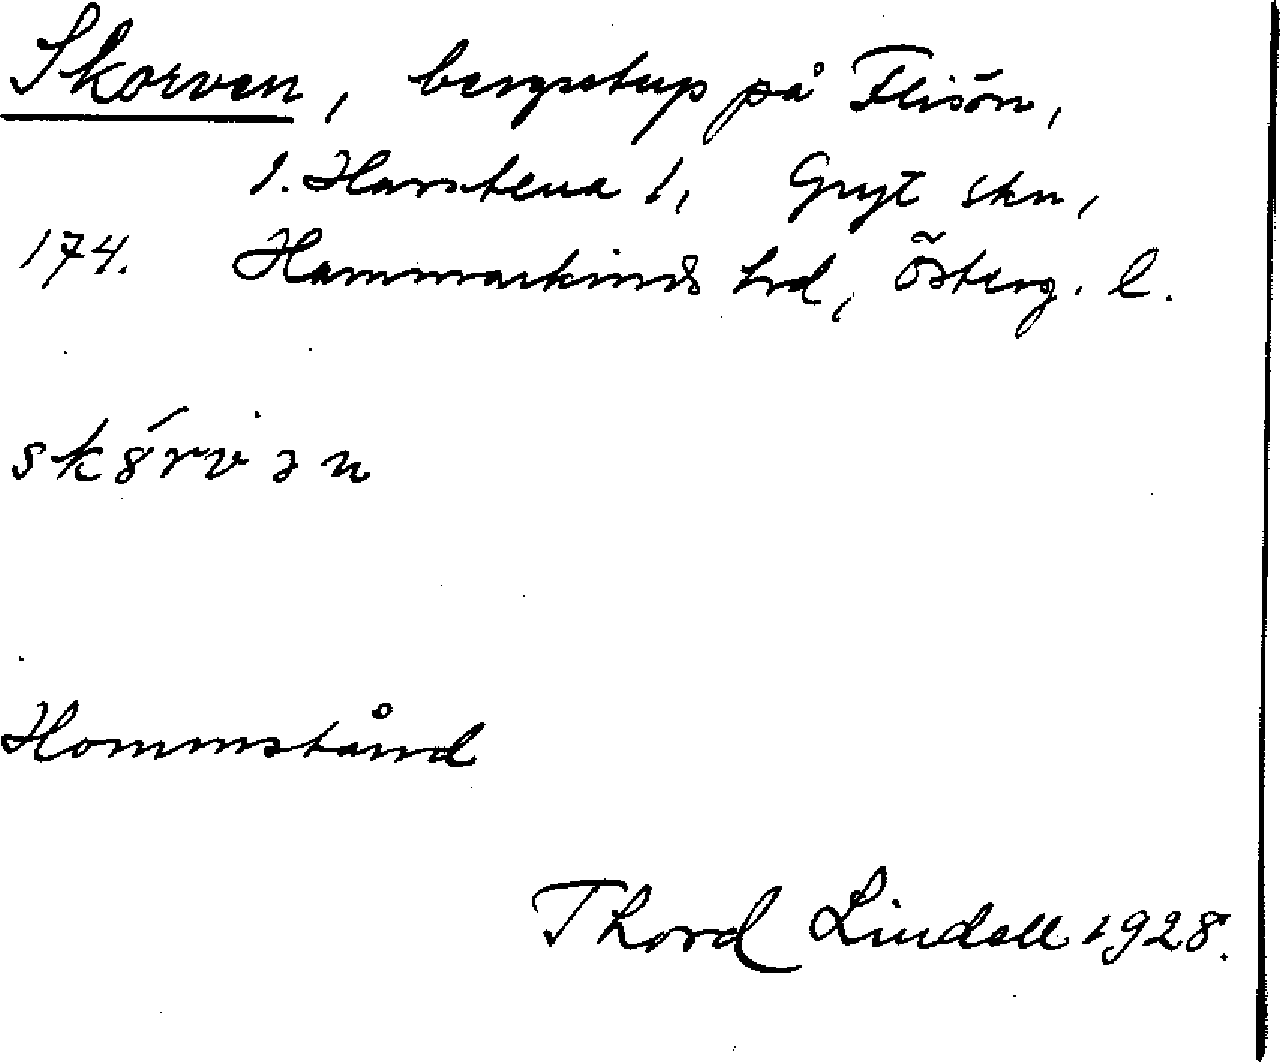 Skorven, bergstup på Flisön,
1. Harstena 1, Gryt skn,
174. Hammarkinds hrd, Österg. l.
sk8́rvən
Hommstånd
Thord Lindell 1928.